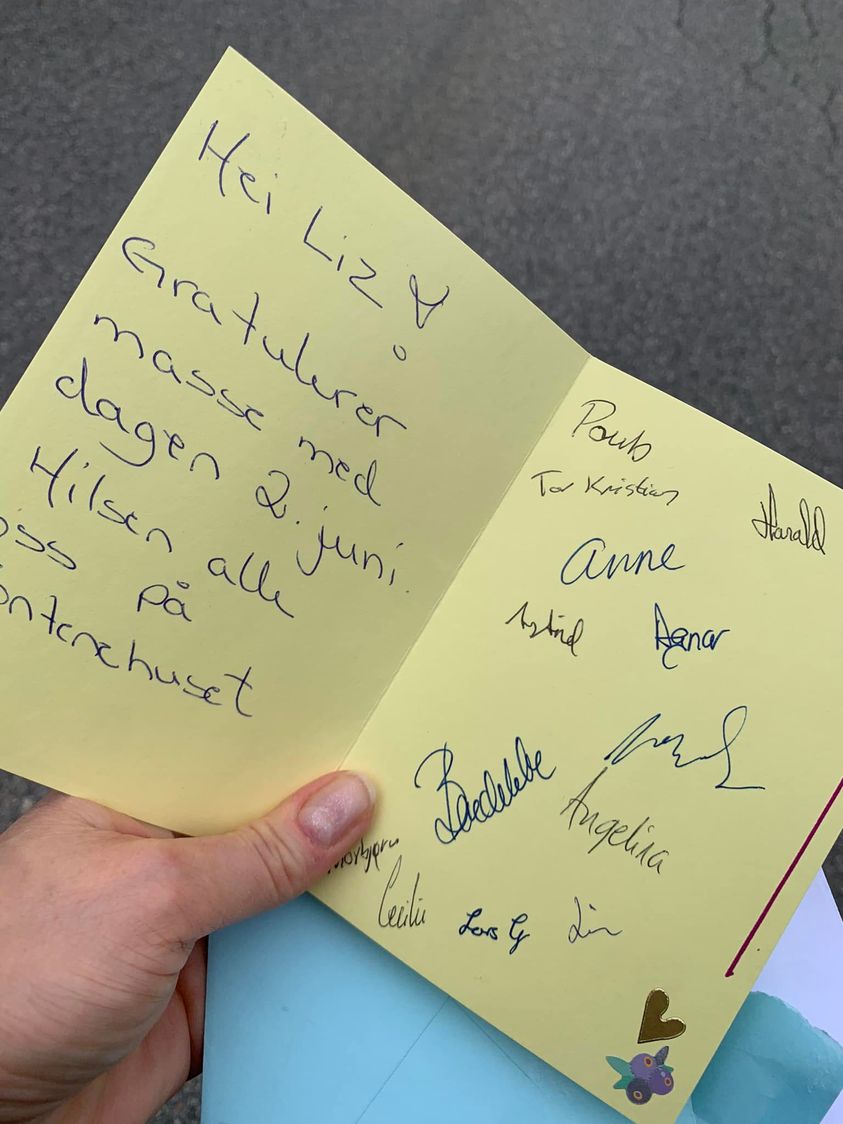 Hei Liz!
Gratulerer
masse med
dagen 2. juni.
Hilsen alle
oss på
Fontenehuset
Tor Kristian
Harald
Anne
Astrid
Agnar
Angelina
Cecilie
Lars G